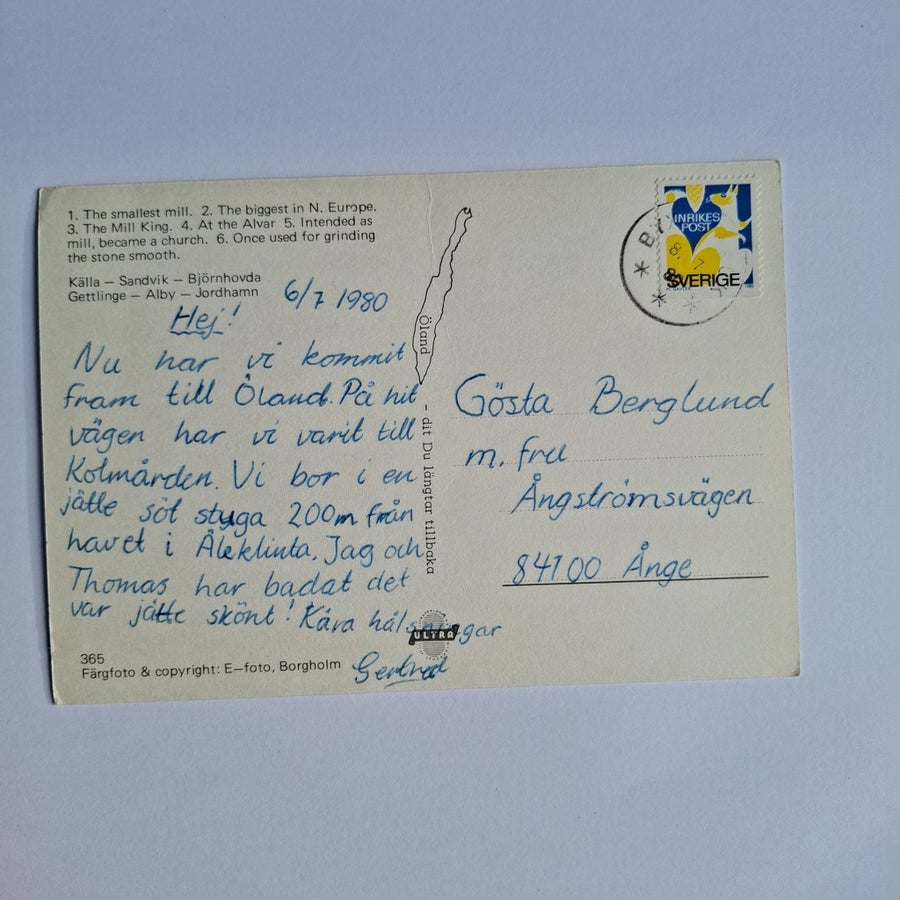 1. The smallest mill. 2. The biggest in N. Europe.
3. The Mill King. 4. At the Alvar 5. Intended as
mill, became a church. 6. Once used for grinding
the stone smooth.
Källa — Sandvik — Björnhovda
Gettlinge — Alby — Jordhamn
6/7 1980
Hej!
Nu har vi kommit
fram till Öland. På hit
vägen har vi varit till
Kolmården. Vi bor i en
jätte söt styga 200m från
havet i Äleklinta. Jag och
Thomas har badat det
var jätte skönt! Kära hälsningar
Gertrud
365
Färgfoto & copyright: E—foto, Borgholm
Öland - dit Du längtar tillbaka
ULTRA
INRIKES
POST
SVERIGE
8. 7
Gösta Berglund
m. fru
Ångströmsvägen
84100 Ånge